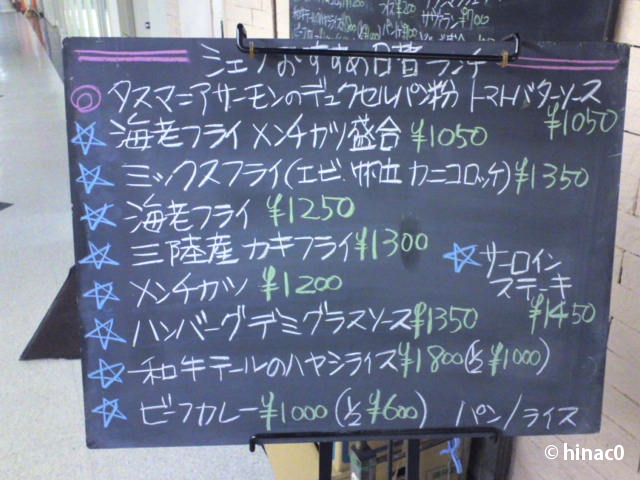 シェフおすすめ日替ランチ
◎タスマニアサーモンのデュクセルパン粉 トマトバターソース
¥1050
☆海老フライ メンチカツ盛合 ¥1050
☆ミックスフライ(エビ・帆立 カニコロッケ)¥1350
☆海老フライ ¥1250
☆三陸産 カキフライ¥1300
☆メンチカツ ¥1200
☆サーロイン
ステーキ
¥1450
☆ハンバーグデミグラスソース¥1350
☆和牛テールのハヤシライス¥1800(½ ¥1000)
☆ビーフカレー¥1000 (½ ¥600) パン/ライス
© hinac0